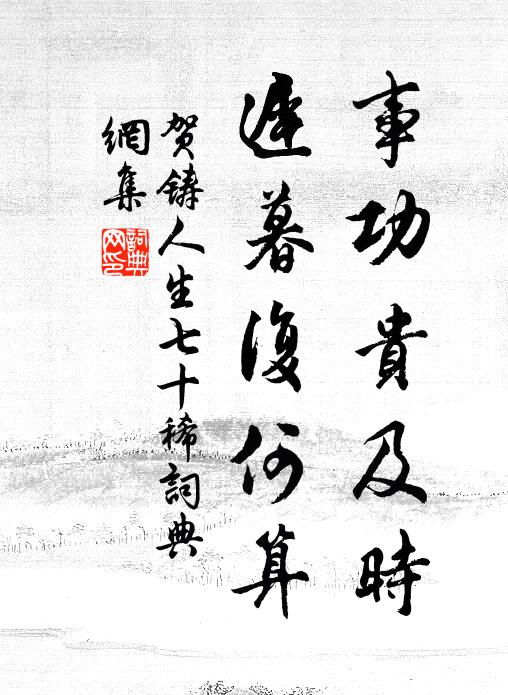 事功貴及時
遲暮復何算
贺鋳人生七十稀詞典
網集
詞典
网印